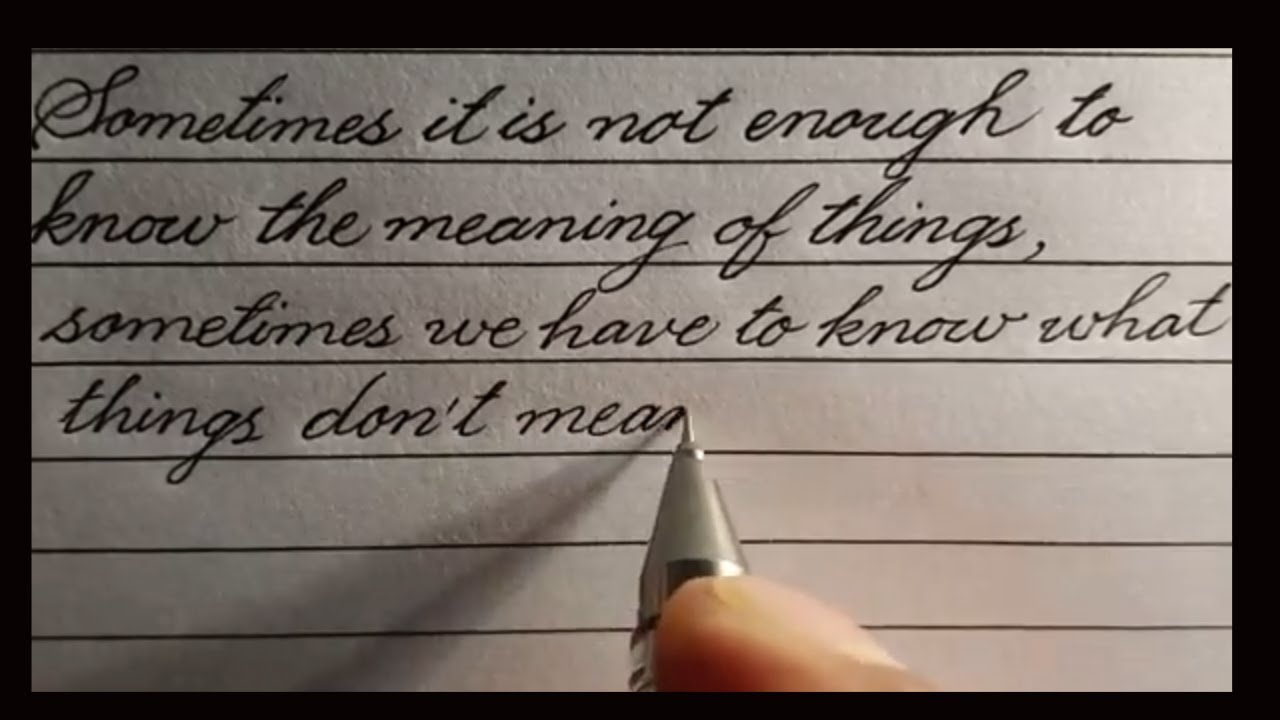 Sometimes it is not enough to
know the meaning of things,
sometimes we have to know what
things don't mean